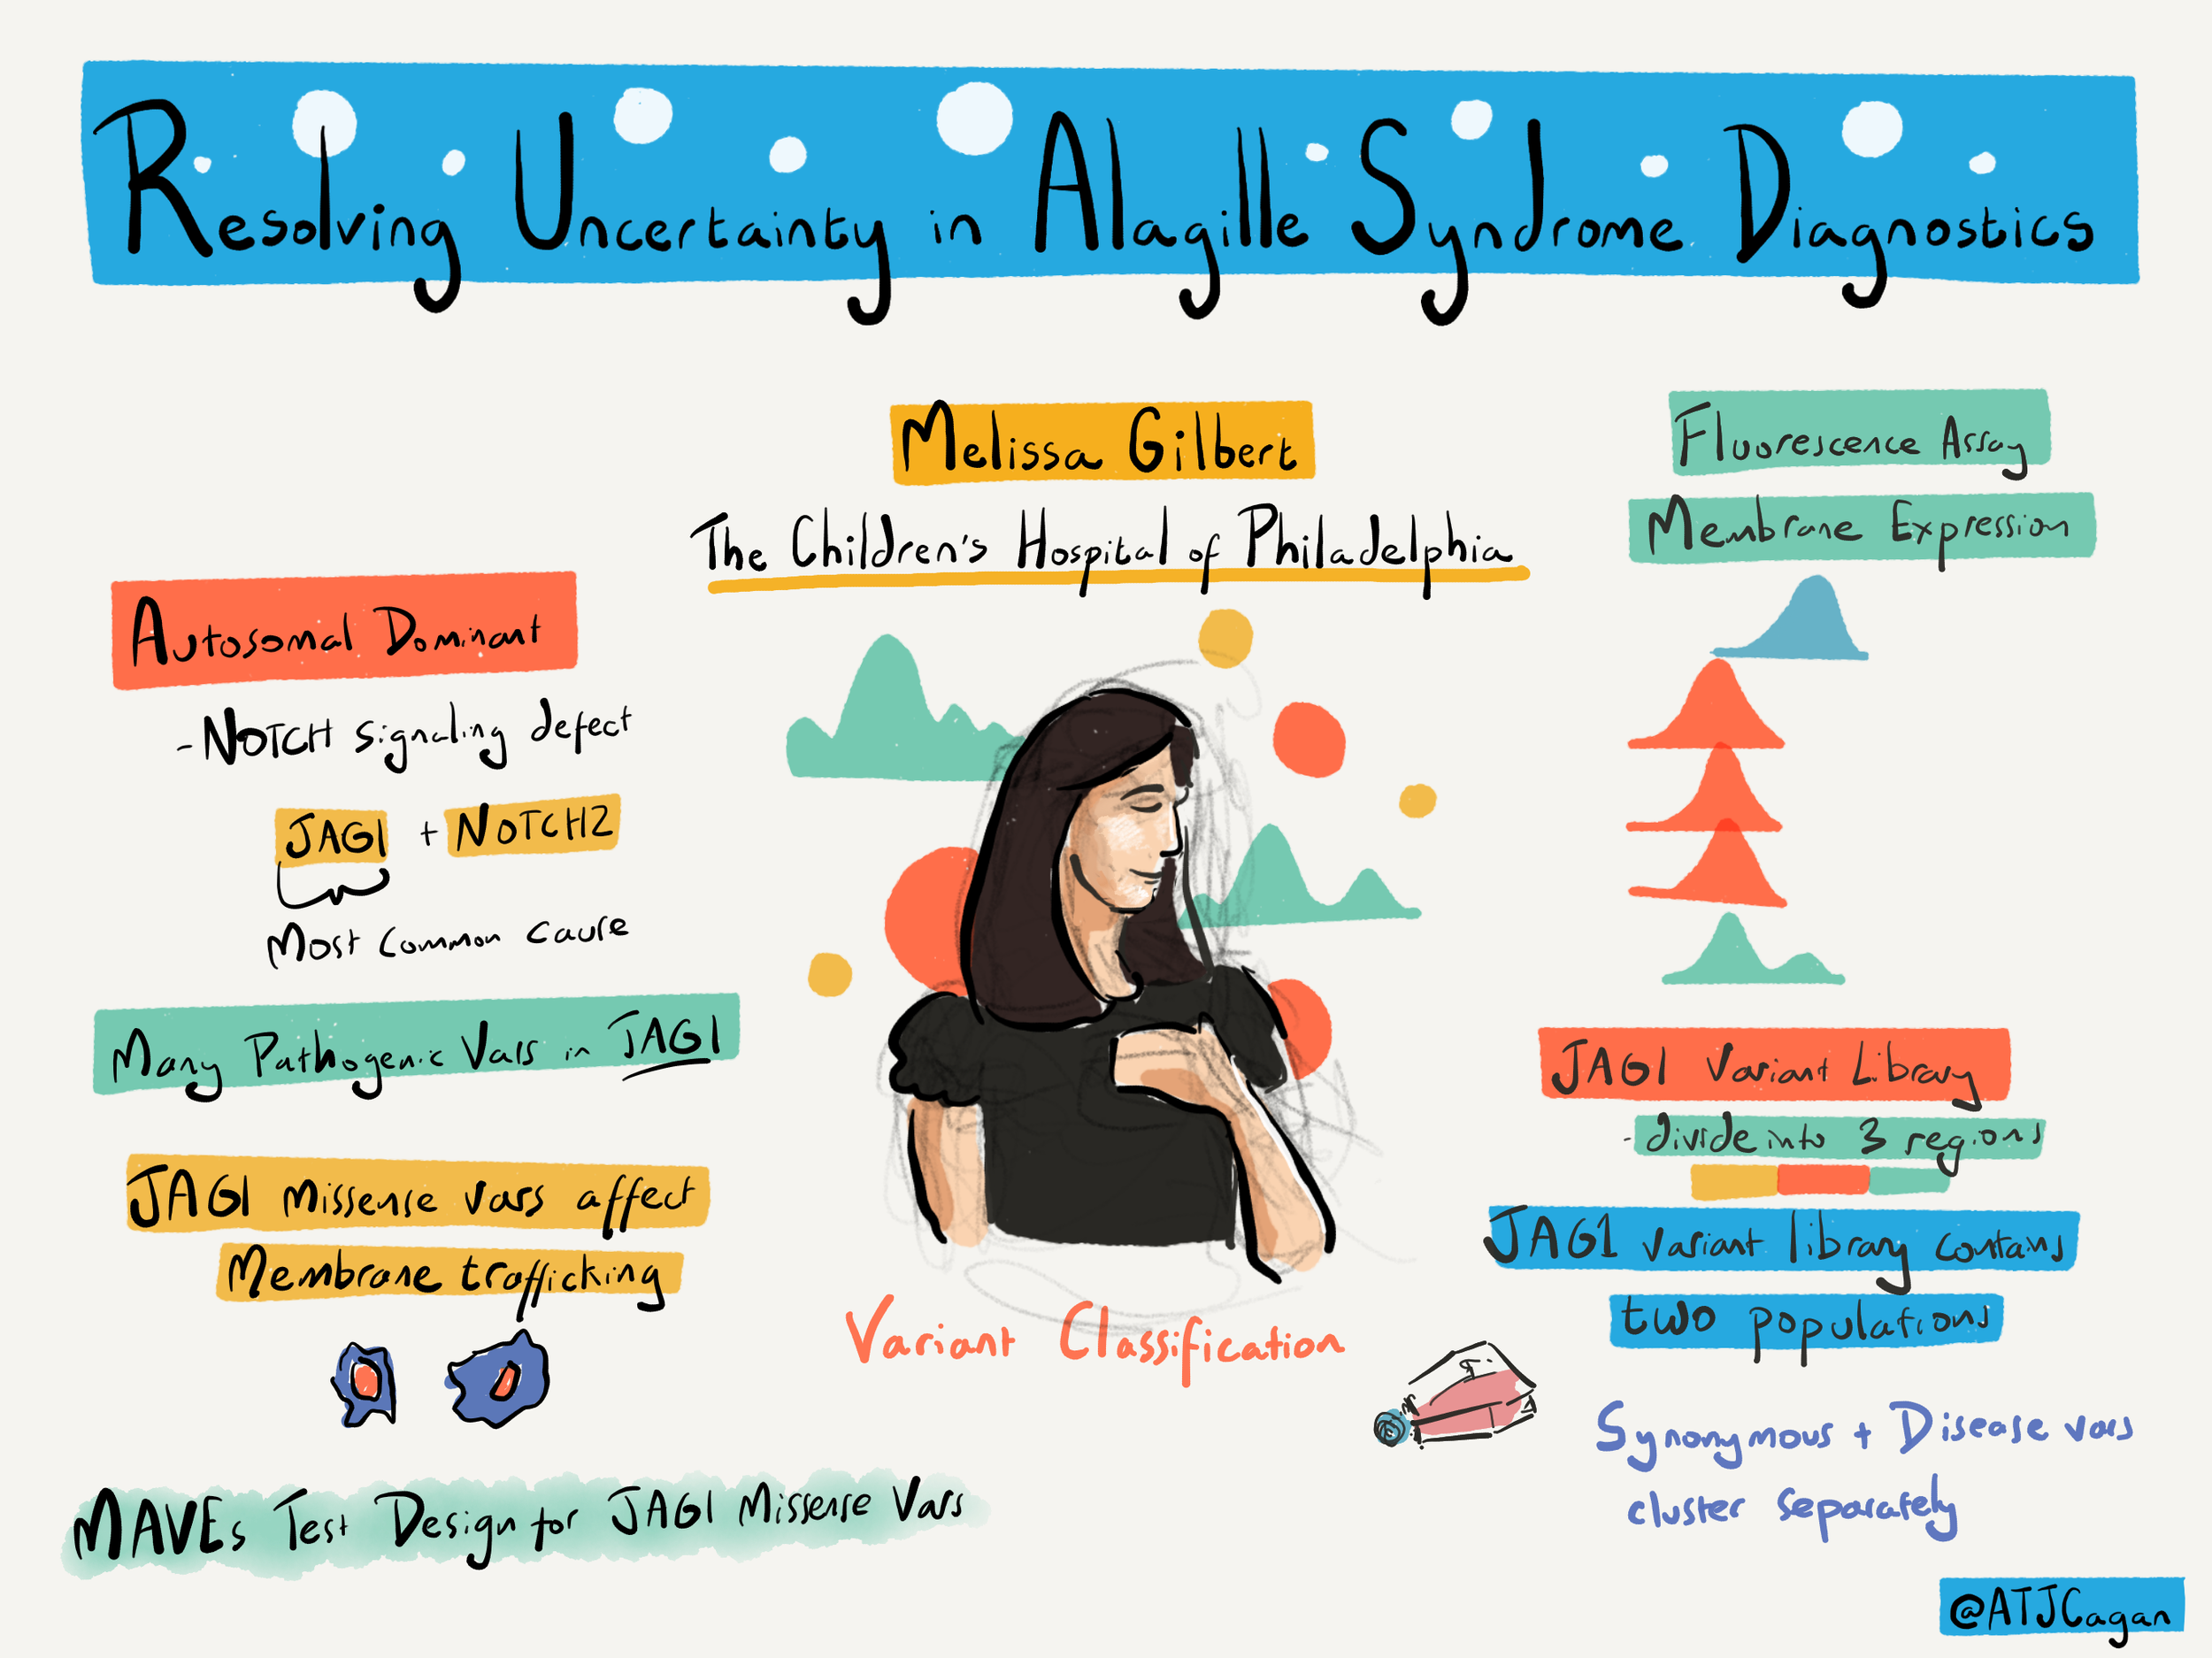 Resolving Uncertainty in Alagille Syndrome Diagnostics
Melissa Gilbert
The Children's Hospital of Philadelphia
Autosomal Dominant
- NOTCH signaling defect
JAG1 + NOTCH2
Most Common cause
Many Pathogenic Vars in JAG1
JAG1 Missense vars affect
Membrane trafficking
MAVEs Test Design for JAG1 Missense Vars
Variant Classification
Fluorescence Assay
Membrane Expression
JAG1 Variant Library
- divide into 3 regions
JAG1 variant library contains
two populations
Synonymous + Disease vars
cluster separately
@ATJCagan